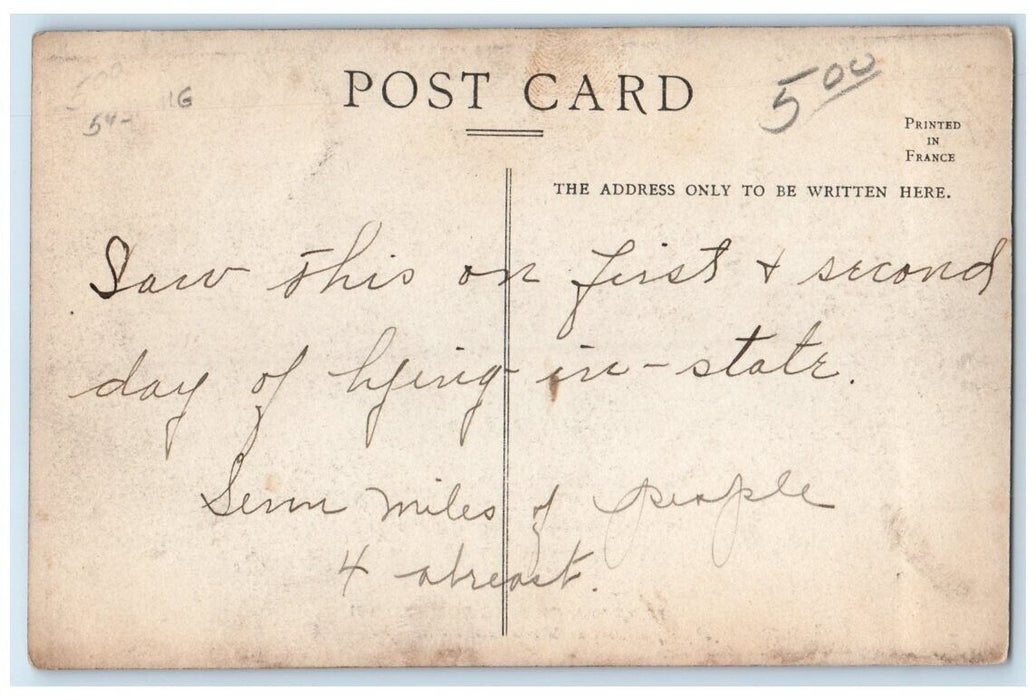 POST CARD
5.00
54-
16
PRINTED
IN
FRANCE
THE ADDRESS ONLY TO BE WRITTEN HERE.
Saw this on first + second
day of lying-in-state.
Seven miles of people
4 abreast.